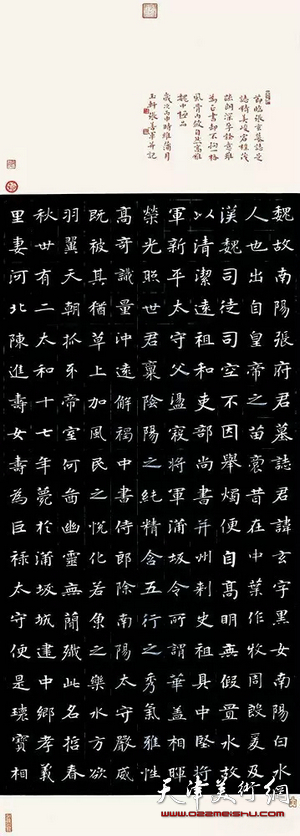 節臨張玄墓誌是
誌精美峻宕樸茂
為正書却不拘一格
風骨內斂自然高雅
魏中極品
歲次丙申時維蒲月
玉軒張善軍并記
魏故南陽張府君墓誌君諱玄字黑女南陽白水
人也出自皇帝之苗裔昔在中葉作牧周殷爰及
漢魏司徒司空不因舉燭便自高明無假置水故
以清潔遠祖和吏部尚書并州刺史祖具中堅將
軍新平太守父盪寇將軍蒲坂令所謂華蓋相暉
榮光照世君稟陰陽之純精含五行之秀氣雅性
高奇識量沖遠解褐中書侍郎除南陽太守嚴威
既被其猶草上加風民之悅化若魚之樂水方欲
羽翼天朝抓牙帝室何啚幽靈無簡殲此名哲春
秋世有二太和十七年薨於蒲坂城建中鄉孝義
里妻河北陳進壽女壽為巨祿太守便是瓌寶相
天津美術网
www.022meishu.com